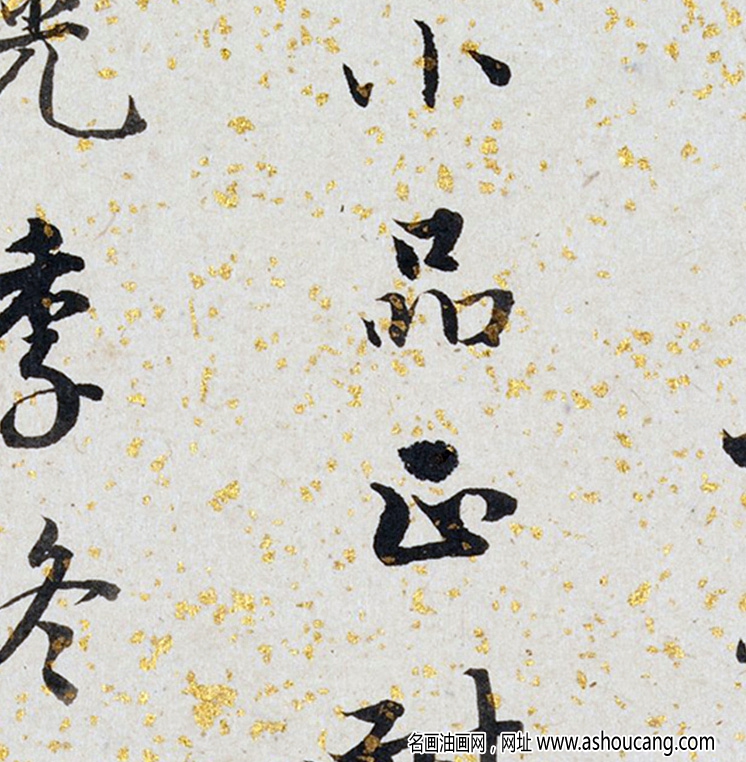 小品正
季冬
名画油画网，网址 www.ashoucang.com